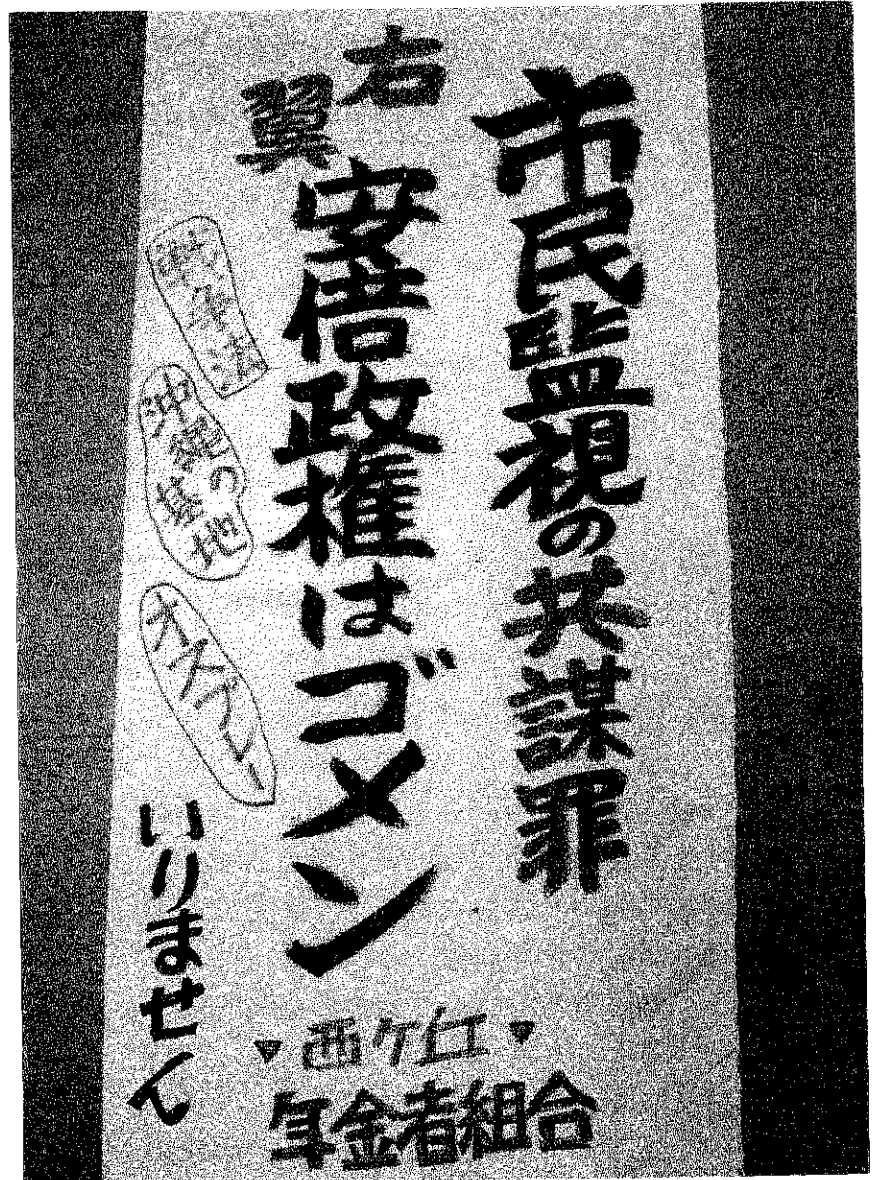 市民監視の共謀罪
右翼
安倍政権はゴメン
戦争法
沖縄の基地
オスプレー
いりません
年金者組合